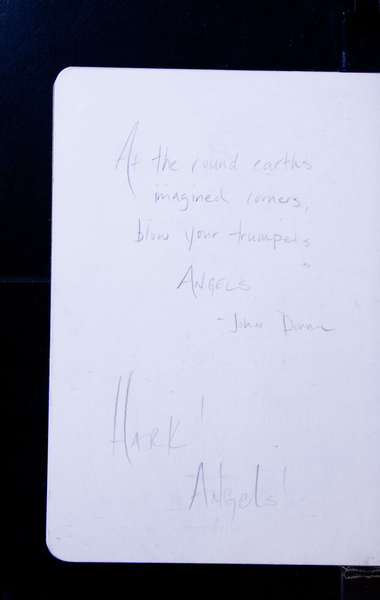 At the round earths
imagined corners,
blow your trumpets
ANGELS
- John Donne
HARK!
Angels!